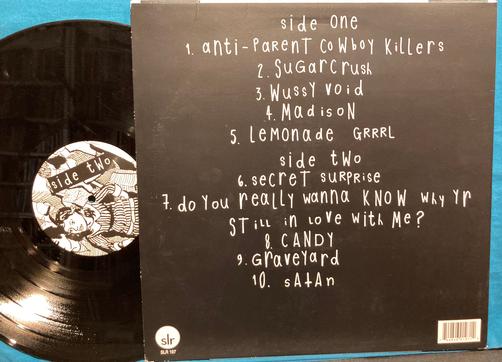 side One
1. anti-PARENT COWBOY KiLLERS
2. SUGARCRUSH
3. Wussy void
4. MADISON
5. LEMONADE GRRRL
side two
6. SECRET SURPRISE
7. do you really wanna KNOW why yr
STill in love with Me?
8. CANDY
9. GRaveyard
10. sAtAn
side two
slr
SLR 197